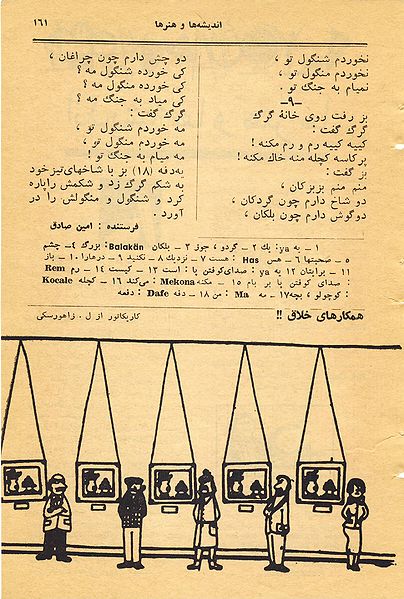 اندیشه‌ها و هنرها
۱۶۱
نخوردم شنگول تو ،
نخوردم منگول تو ،
نمیام به جنگ تو .
ـ۹ـ
بز رفت روی خانهٔ گرگ
گرگ گفت :
کییه کییه رم و رم مکنه !
پر کاسه کچله منه خاك مکنه !
بز گفت :
منم منم بزبزکان ،
دو شاخ دارم چون گردکان ،
دوگوش دارم چون بلکان ،
دو چش دارم چون چراغان ،
کی خورده شنگول مه ؟
کی خورده منگول مه ؟
کی میاد به جنگ مه ؟
گرگ گفت :
مه خوردم شنگول تو ،
مه خوردم منگول تو ،
مه میام به جنگ تو !
یه‌دفه (۱۸) بز با شاخهای‌تیزخود
به شکم گرگ زد و شکمش راپاره
کرد و شنگول و منگولش را در
آورد .
فرستنده : امین صادق
۱ ـ یه ya: یك ۲ ـ گردو ، جوز ۲ ـ بلکان Balakân: بزرگ ۴ـ چشم
۵ ـ صحبتها ۶ ـ هس Has : هست ۷ ـ نزدیك ۸ ـ نکنید ۹ ـ درهارا ۱۰ ـ باز
۱۱ ـ برایتان ۱۲ یه ya : صدای‌کوفتن پا : است ۱۳ ـ کیست ۱۴ ـ رم Rem
: صدای کوفتن پا بر بام ۱۵ ـ مکنه Mekona: می‌کند ۱۶ ـ کچله Kocale
: کوچولو ، بچه ۱۷ـ مه Ma : من ۱۸ ـ دفه Dafe : دفعه
همکارهای خلاق !!
کاریکاتور از ل . زاهورسکی